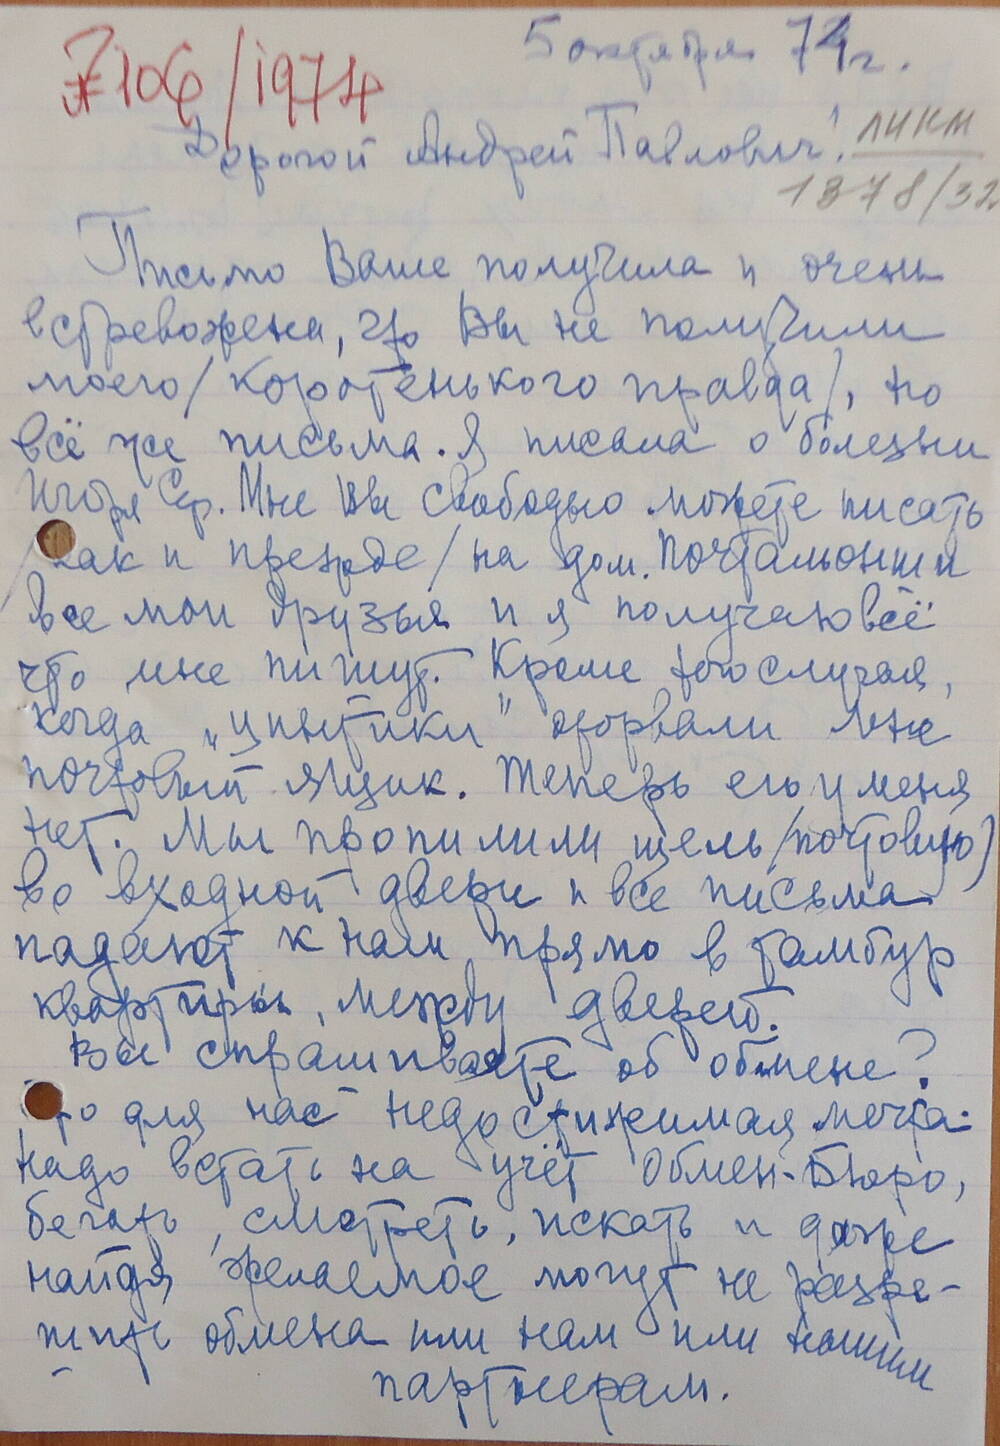 106/1974
5 октября 74г.
Дорогой Андрей Павлович!
ЛИКМ
1878/32
Письмо Ваше получила и очень
встревожена, что Вы не получили
моего /коротенького правда/, но
всё же письма. Я писала о болезни
Игоря Сер. Мне Вы свободно можете писать
/как и прежде/ на дом. Почтальонши
все мои друзья и я получаю всё
что мне пишут. Кроме того случая,
когда оторвали мне
почтовый ящик. Теперь его у меня
нет. Мы пропилили щель /почтовую/
во входной двери и все письма
падают к нам прямо в тамбур
квартиры, между дверей.
Вы спрашиваете об обмене?
Это для нас недостижимая мечта:
надо встать на учёт Обмен-Бюро,
бегать, смотреть, искать и даже
найдя желаемое могут не разре-
шить обмена или нам или нашим
партнерам.